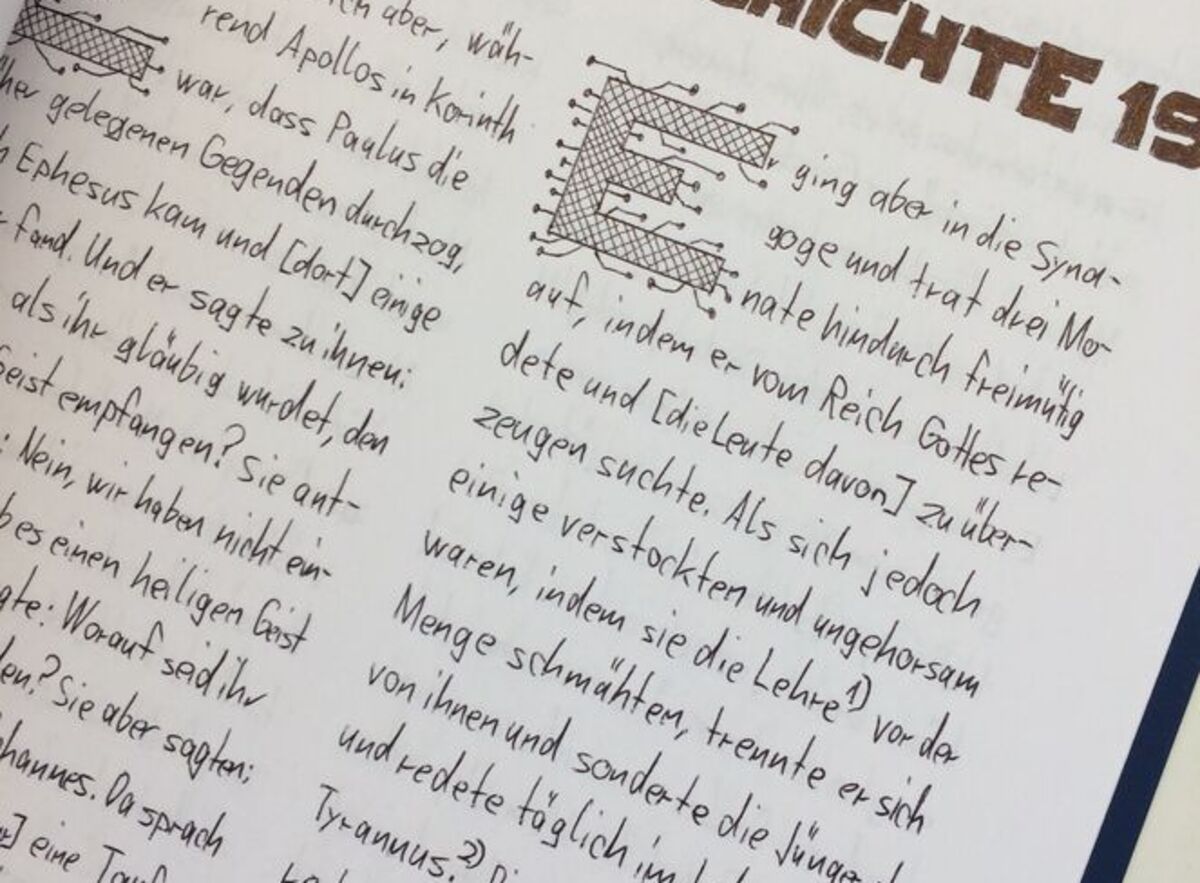 CHICHTE 19
aber, wäh-
rend Apollos in Korinth
war, dass Paulus die
gelegenen Gegenden durchzog,
Ephesus kam und [dort] einige
fand. Und er sagte zu ihnen:
als ihr gläubig wurdet, den
Geist empfangen? Sie ant-
: Nein, wir haben nicht ein-
es einen heiligen Geist
gte: Worauf seid ihr
den? Sie aber sagten:
hannes. Da sprach
eine Tauf
Er ging aber in die Syna-
goge und trat drei Mo-
nate hindurch freimütig
auf, indem er vom Reich Gottes re-
dete und [die Leute davon] zu über-
zeugen suchte. Als sich jedoch
einige verstockten und ungehorsam
waren, indem sie die Lehre 1) vor der
Menge schmähten, trennte er sich
von ihnen und sonderte die Jünger
und redete täglich im
Tyrannus. 2)